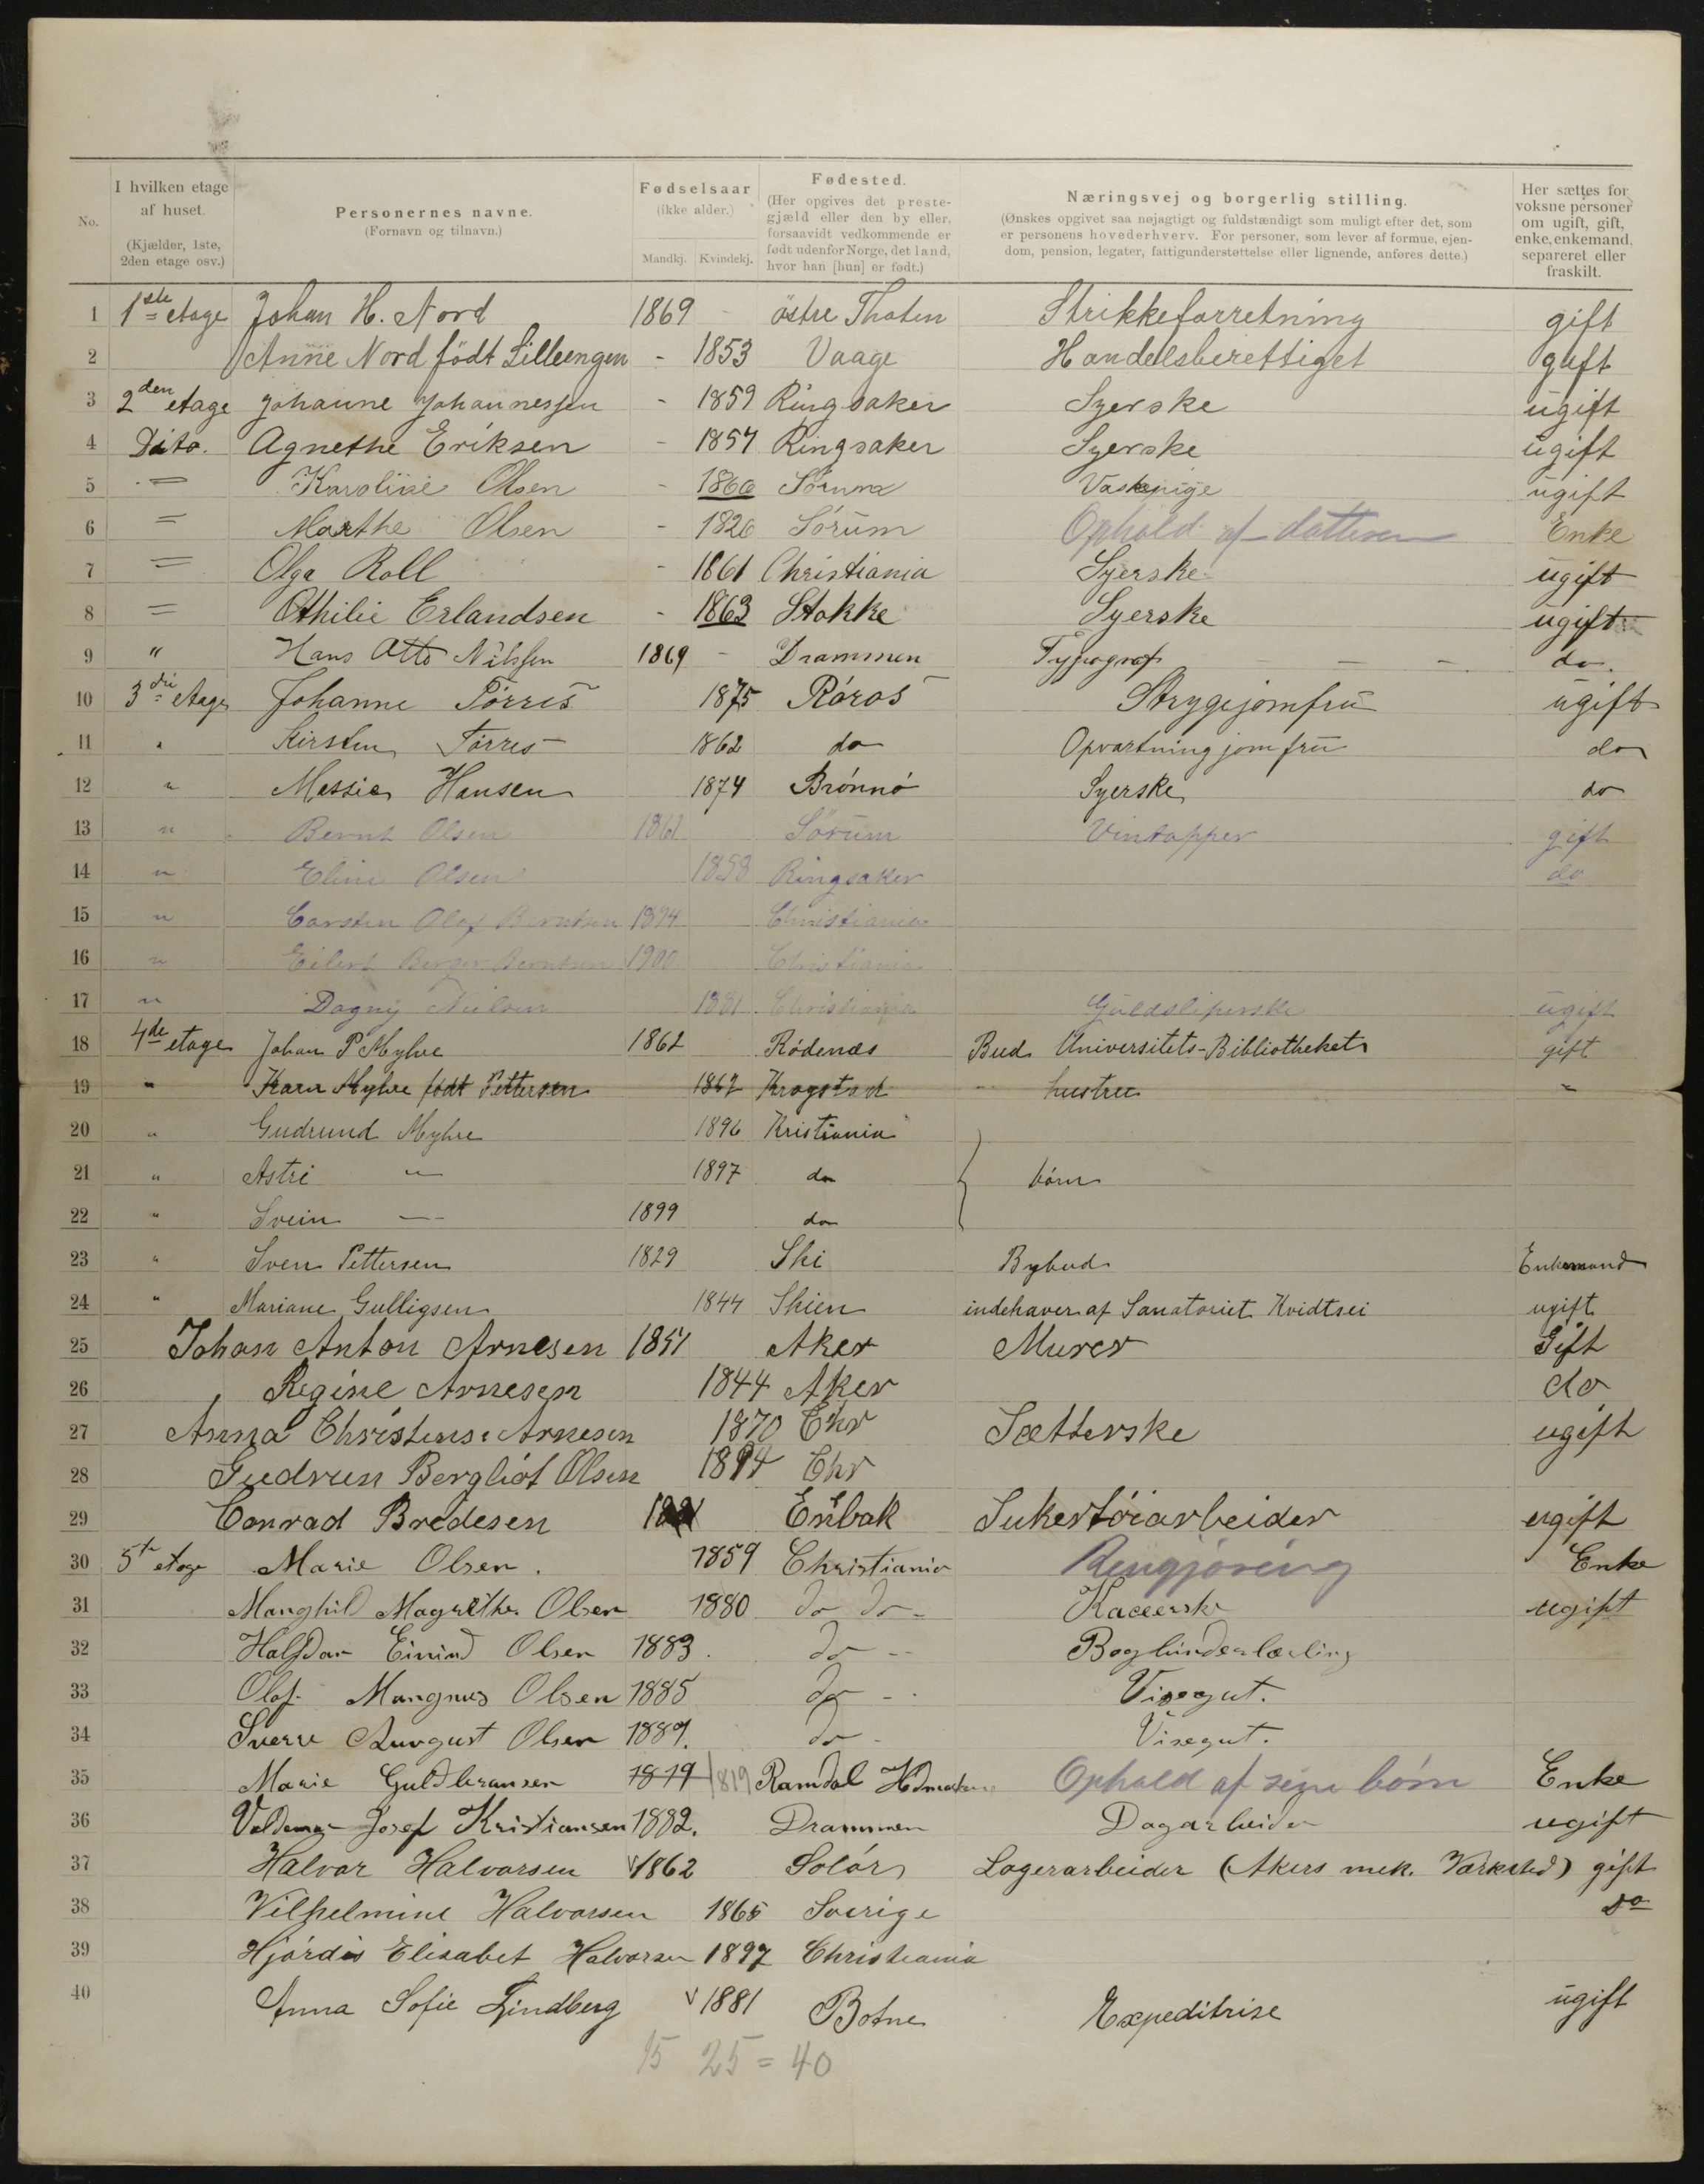 No.
I hvilken etage af huset. (Kjælder, 1ste, 2den etage osv.)
Personernes navne. (Fornavn og tilnavn.)
Fødselsaar (ikke alder.) Mandkj. Kvindekj.
Fødested. (Her opgives det prestegjæld eller den by eller, forsaavidt vedkommende er født udenfor Norge, det land, hvor han [hun] er født.)
Næringsvej og borgerlig stilling. (Ønskes opgivet saa nøjagtigt og fuldstændigt som muligt efter det, som er personens hovederhverv. For personer, som lever af formue, ejendom, pension, legater, fattigunderstøttelse eller lignende, anføres dette.)
Her sættes for voksne personer om ugift, gift, enke, enkemand, separeret eller fraskilt.
1 1ste etage Johan H. Nord 1869 - østre Thoten Strikkeforretning gift
2 Anne Nord født Lilleengen - 1853 Vaage Handelsberettiget gift
3 2den etage Johanne Johannessen - 1859 Ringsaker Syerske ugift
4 Dito. Agnethe Eriksen - 1857 Ringsaker Syerske ugift
5 = Karoline Olsen - 1866 Sørum Vaskepige ugift
6 = Marthe Olsen - 1826 Sørum Ophold af datteren Enke
7 = Olga Roll - 1861 Christiania Syerske ugift
8 = Othilie Erlandsen - 1863 Stokke Syerske ugift
9 " Hans Otto Nilssen 1869 - Drammen Typograf - - - do.
10 3die etage Johanne Törres 1875 Røros Strygejomfru ugift
11 " Kirsten Törres 1862 do Opvartningjomfru do
12 " Messie Hansen 1874 Brönnö Syerske do
13 " Bernt Olsen 1861 Sørum Vintapper gift
14 " Eline Olsen 1858 Ringsaker do
15 " Carsten Olaf Berntsen 1894 Christiania
16 " Eilert Berger Berntsen 1900 Christiania
17 " Dagny Nielsen 1881 Christiania Guldsliperske ugift
18 4de etage Johan P Myhre 1862 Rødenæs Bud Universitets-Bibliotheket gift
19 " Karn Myhre født Pettersen 1862 Krogstad hustru "
20 " Gudrund Myhre 1896 Kristiania
21 " Astri " 1897 do } børn
22 " Svein — 1899 do
23 " Sven Pettersen 1829 Ski Bybud Enkemand
24 " Mariane Gulligsen 1844 Skien indehaver af Sanatoriet Kvidtsei ugift
25 Johan Anton Arnesen 1851 Aker Murer Gift
26 Regine Arnesen 1844 Aker do
27 Anna Christense Arnesen 1870 Chr Sætterske ugift
28 Gudrun Bergliot Olsen 1894 Chr
29 Conrad Bredesen Enbak Sukertøiarbeider ugift
30 5te etage Marie Olsen. 1859 Christiania Rengjøring Enke
31 Manghild Magrethe Olsen 1880 do do - ugift
32 Halfdan Eivind Olsen 1883. do - Bogbinderlærling
33 Olaf Mangnus Olsen 1885 do - Visergut.
34 Sverre Aungust Olsen 1889. do - Visegut.
35 Marie Guldbransen 1819 1819 Ramdal Hedmarken Ophold af sine børn Enke
36 Valdemar Josef Kristiansen 1882. Drammen Dagarbeider ugift
37 Halvor Halvorsen 1862 Solør Lagerarbeider (Akers mek. Værksted) gift
38 Vilhelmine Halvorsen 1865 Sverige do
39 Hjørdis Elisabet Halvorsen 1897 Christiania
40 Anna Sofie Lindberg 1881 Botne Expeditrise ugift
15 25 = 40